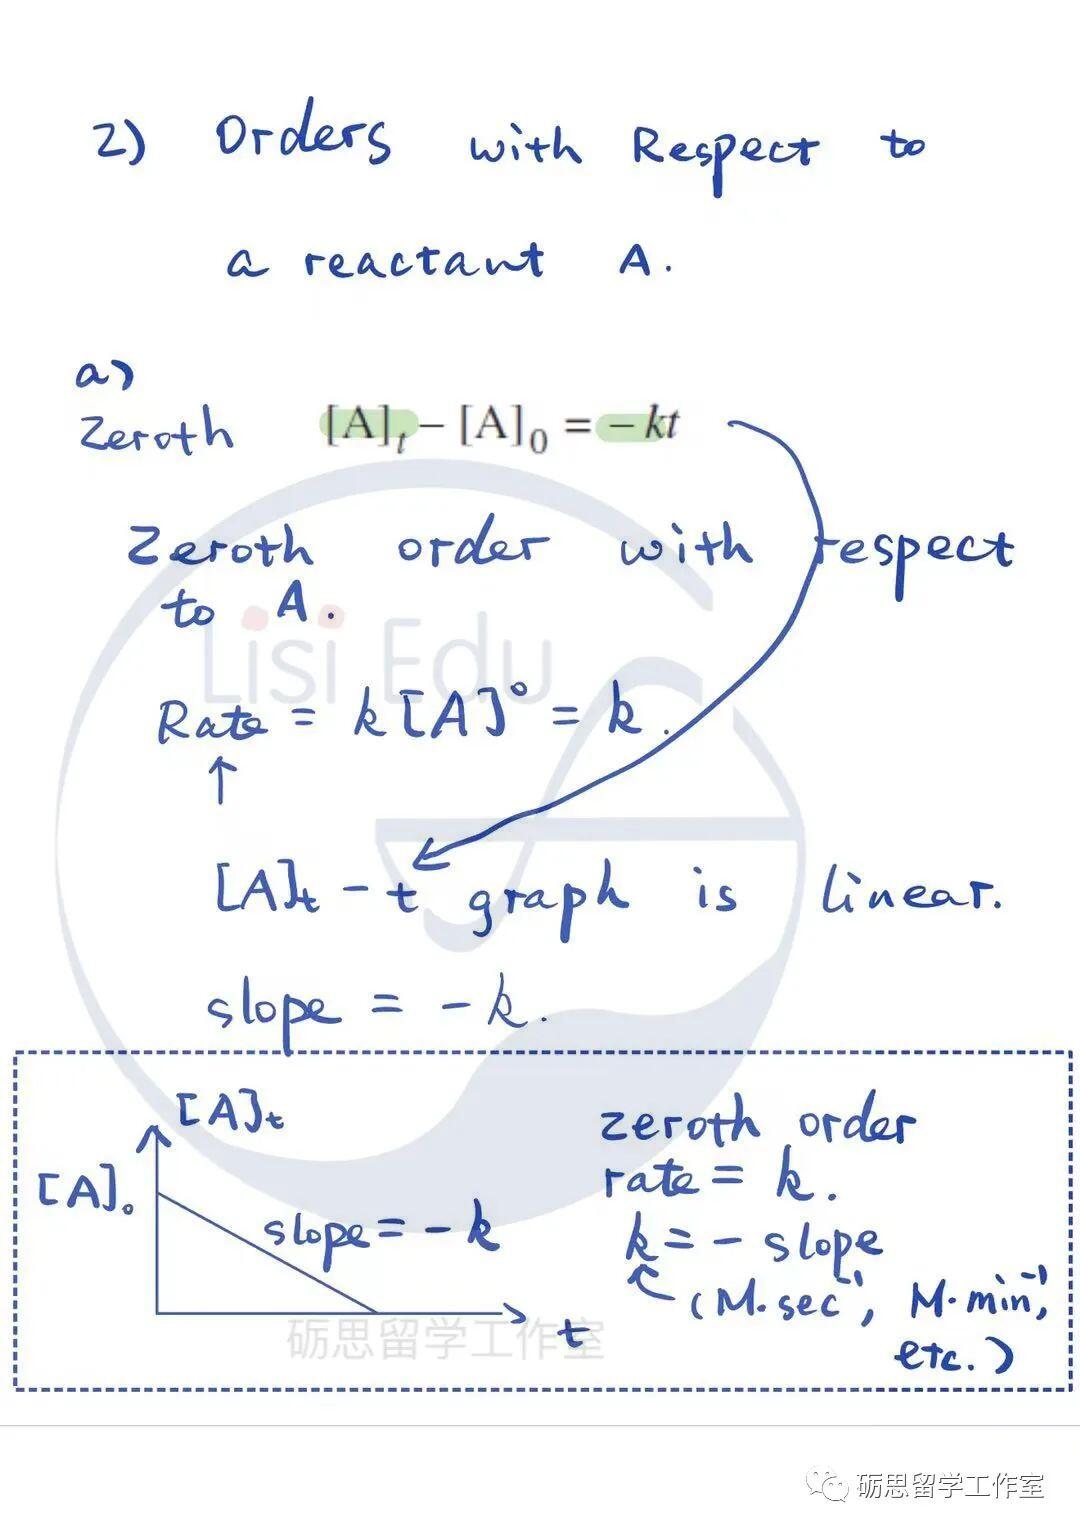 2) Orders with Respect to
a reactant A.
a)
Zeroth [A]t − [A]0 = −kt
Zeroth order with respect
to A.
Lisi Edu
Rate = k[A]° = k.
↑
[A]t - t graph is linear.
slope = -k.
[A]t
[A]0
slope = -k
t
zeroth order
rate = k.
k = - slope
(M·sec⁻¹, M·min⁻¹,
etc.)
砺思留学工作室
砺思留学工作室